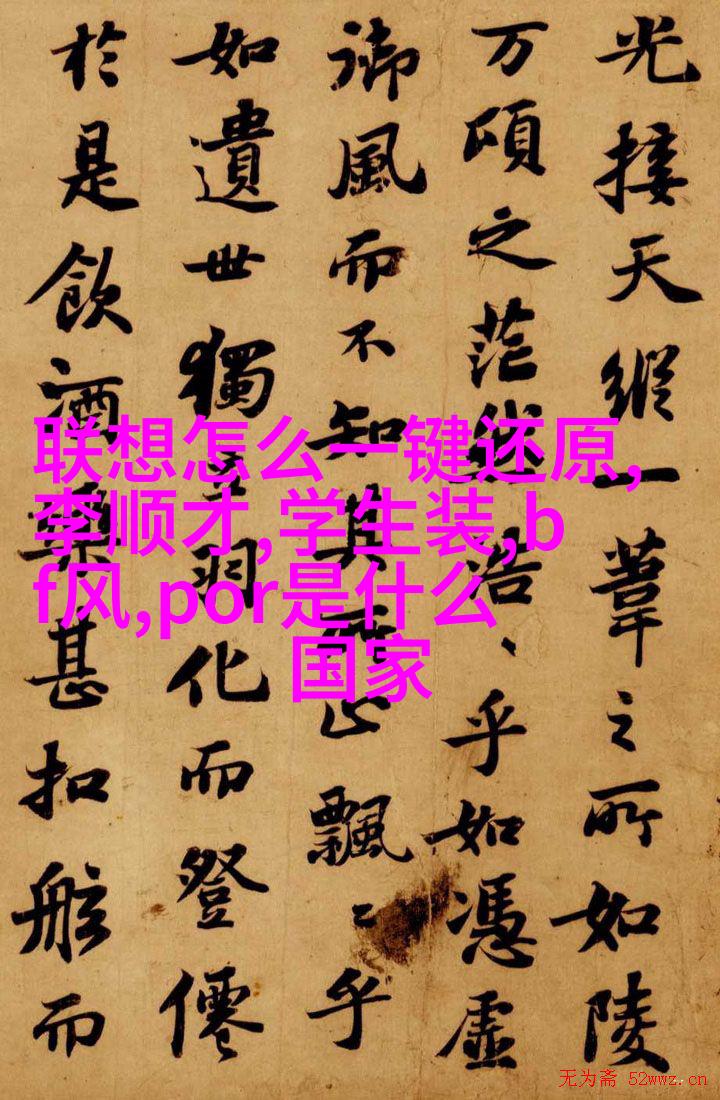 光接天縱一葦之所如陵
万頃之茫然浩、乎如憑虛
御風而不知其所止飄〻乎
如遺世獨立羽化而登僊
於是飲酒樂甚扣舷而
联想怎么一键还原,
李顺才,学生装,b
f风,por是什么
国家
无为斋 52wwz.cn